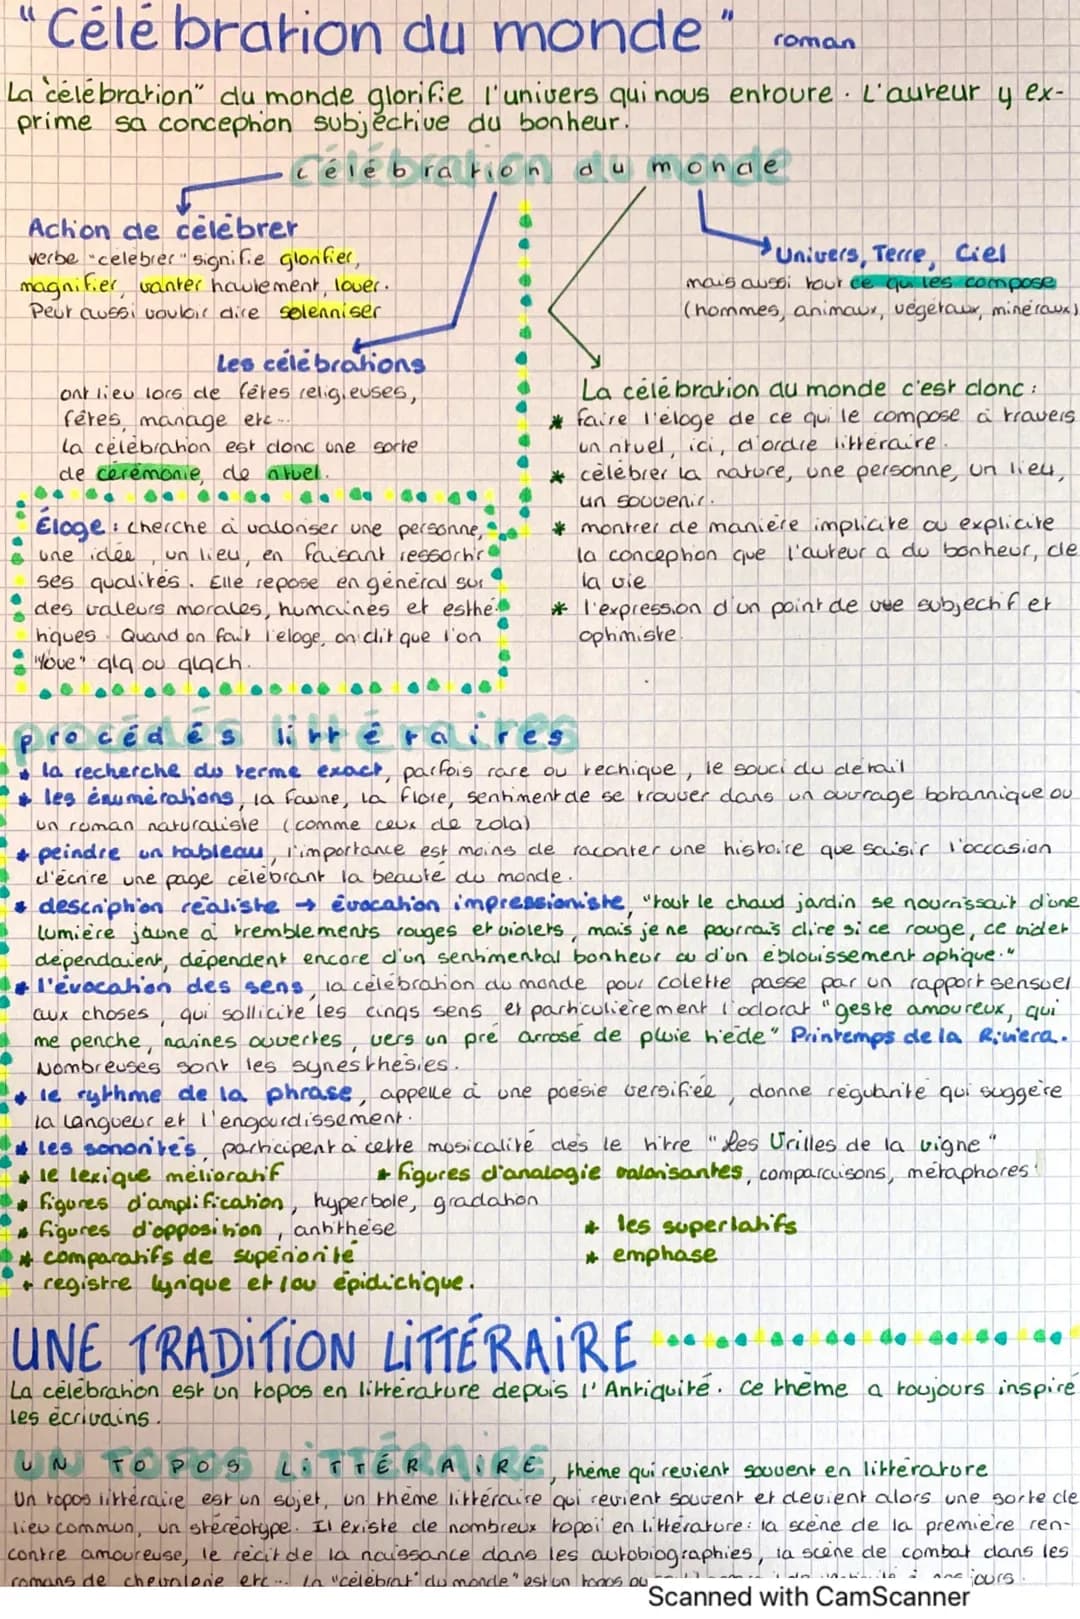 "Célébration du monde" roman
La "célébration" du monde glorifie l'univers qui nous entoure. L'auteur y ex-
prime sa conception subjective du bonheur.
célébration du monde
Action de célébrer
verbe "célébrer" signifie glorifier,
magnifier, vanter hautement, louer.
Peut aussi vouloir dire solenniser
Les célébrations
ont lieu lors de fêtes religieuses,
fêtes, mariage etc...
La célébration est donc une sorte
de cérémonie, de rituel.
Éloge : cherche à valoriser une personne,
une idée, un lieu, en faisant ressortir
ses qualités. Elle repose en général sur
des valeurs morales, humaines et esthé-
tiques. Quand on fait l'éloge, on dit que l'on
"loue" qlq ou qlqch.
Univers, Terre, Ciel
mais aussi tout ce qui les compose
(hommes, animaux, végétaux, minéraux)
La célébration du monde c'est donc :
* faire l'éloge de ce qui le compose à travers
un rituel, ici, d'ordre littéraire.
* célébrer la nature, une personne, un lieu,
un souvenir.
* montrer de manière implicite ou explicite
la conception que l'auteur a du bonheur, de
la vie
* l'expression d'un point de vue subjectif et
optimiste.
procédés littéraires
* la recherche du terme exact, parfois rare ou technique, le souci du détail
* les énumérations, la faune, la flore, sentiment de se trouver dans un ouvrage botannique ou
un roman naturaliste (comme ceux de Zola)
* peindre un tableau, l'importance est moins de raconter une histoire que saisir l'occasion
d'écrire une page célébrant la beauté du monde.
* description réaliste → évocation impressioniste, "tout le chaud jardin se nourrissait d'une
lumière jaune à tremblements rouges et violets, mais je ne pourrais dire si ce rouge, ce violet
dépendaient, dépendent encore d'un sentimental bonheur ou d'un éblouissement optique."
* l'évocation des sens, la célébration du monde pour Colette passe par un rapport sensuel
aux choses, qui sollicite les cinqs sens et particulièrement l'odorat "geste amoureux, qui
me penche, narines ouvertes, vers un pré arrosé de pluie tiède" Printemps de la Riviera.
Nombreuses sont les synesthésies.
* le rythme de la phrase, appelle à une poésie versifiée, donne régularité qui suggère
la langueur et l'engourdissement.
* les sonorités, participent à cette musicalité dès le titre "Les Vrilles de la vigne"
* le lexique mélioratif * figures d'analogie valorisantes, comparaisons, métaphores
* figures d'amplification, hyperbole, gradation
* figures d'opposition, antithèse * les superlatifs
* comparatifs de supériorité * emphase
* registre lyrique et/ou épidictique.
UNE TRADITION LITTÉRAIRE
La célébration est un topos en littérature depuis l'Antiquité. Ce thème a toujours inspiré
les écrivains.
UN TOPOS LITTÉRAIRE, thème qui revient souvent en littérature
Un topos littéraire est un sujet, un thème littéraire qui revient souvent et devient alors une sorte de
lieu commun, un stéréotype. Il existe de nombreux topoï en littérature : la scène de la première ren-
contre amoureuse, le récit de la naissance dans les autobiographies, la scène de combat dans les
romans de chevalerie etc... la "célébrat° du monde" est un topos
jours.
Scanned with CamScanner